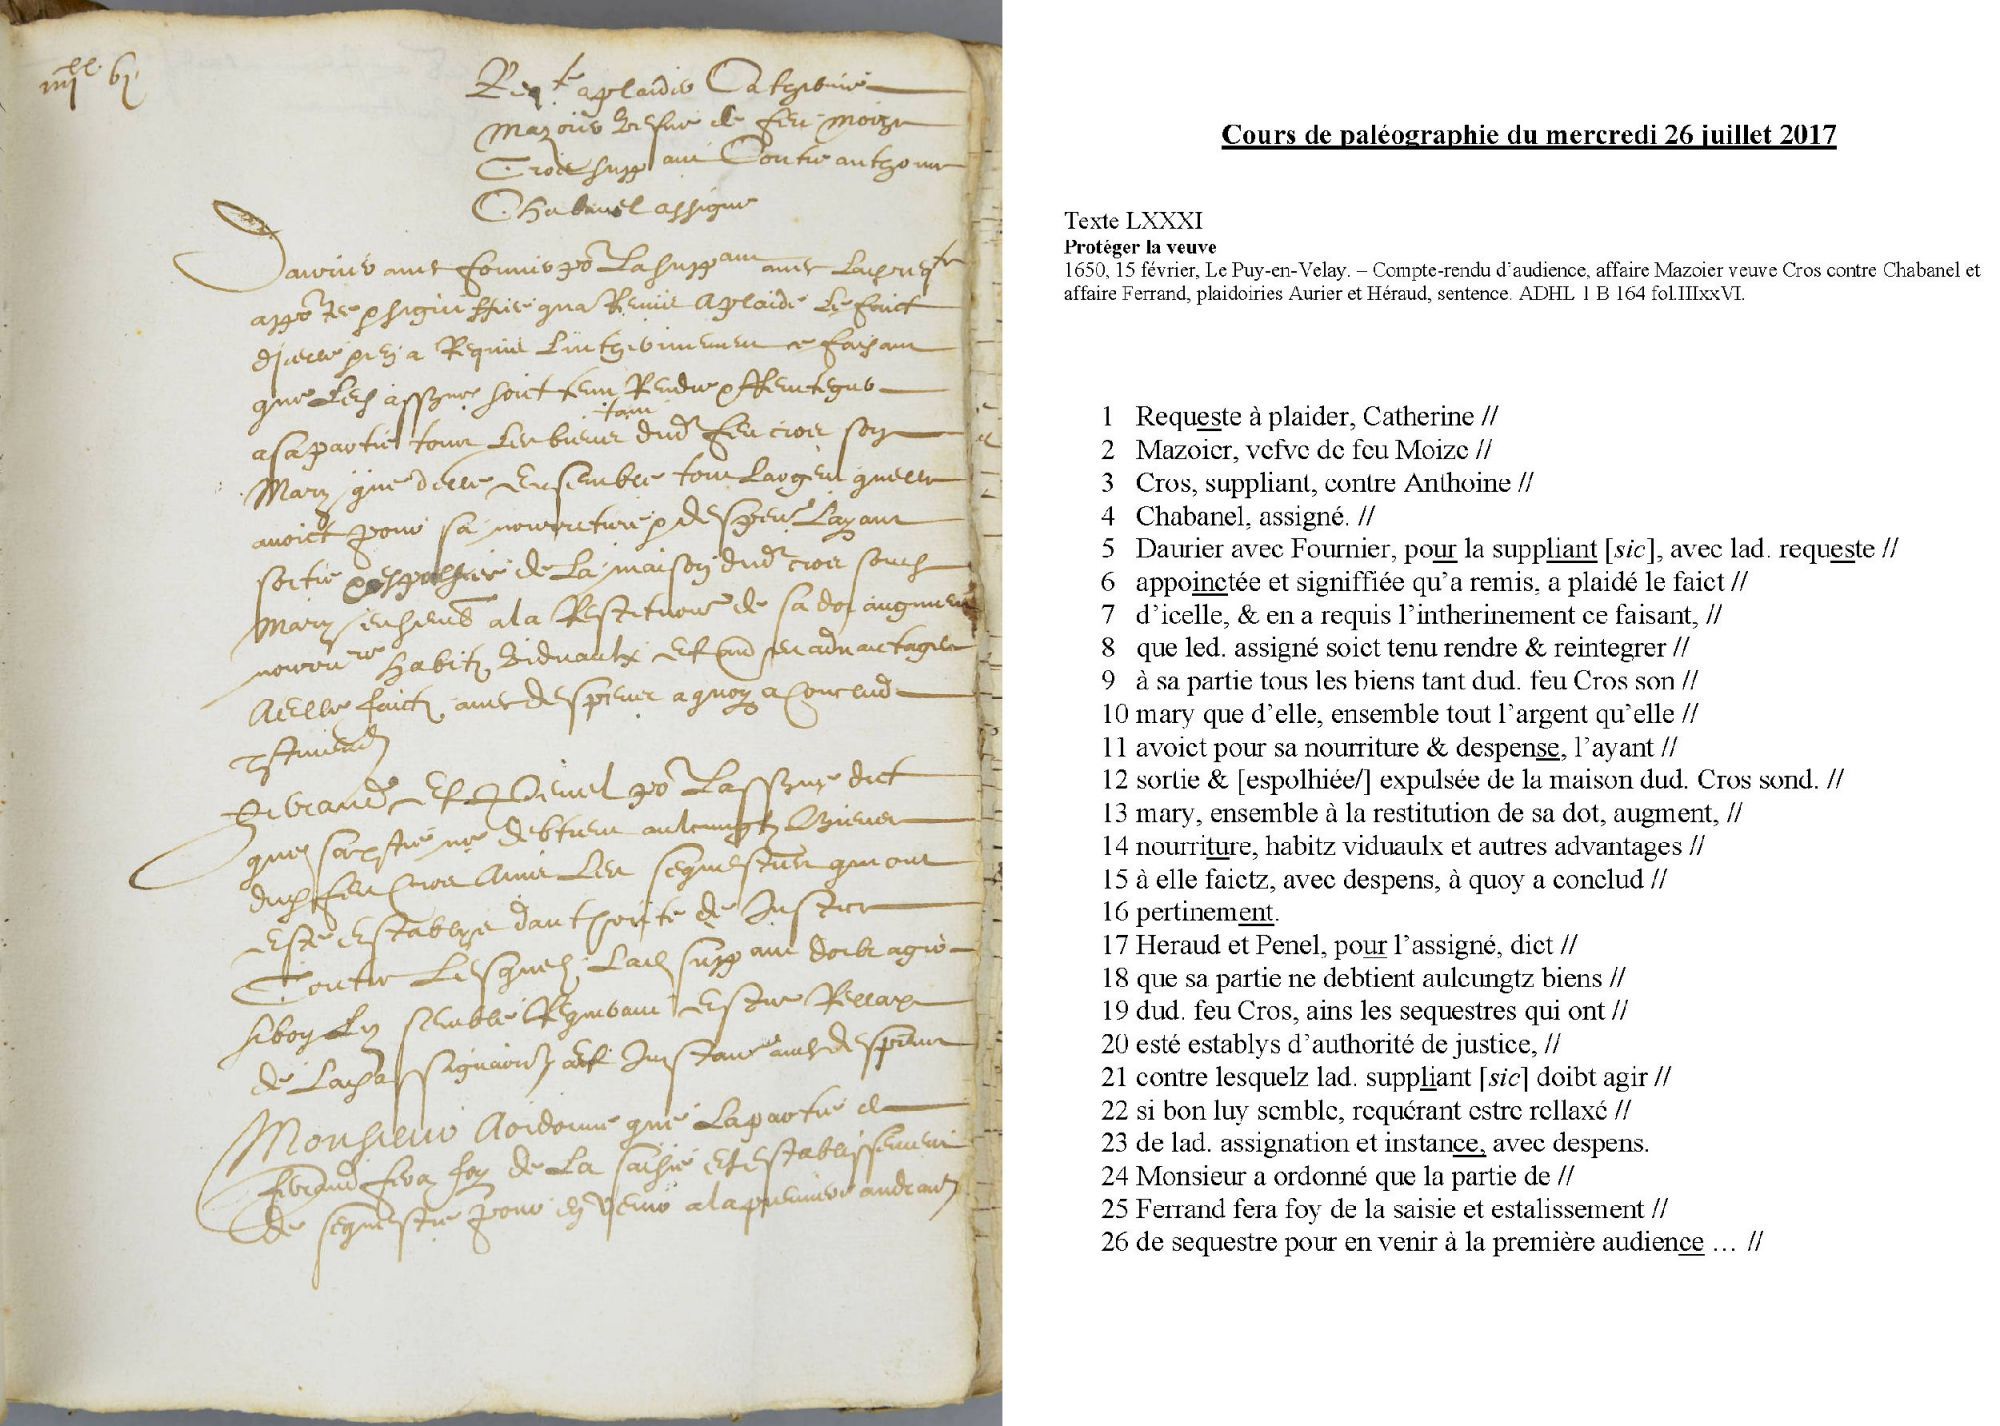 iiijxx vj
Reqte a plaider Catherine
Mazoier vefve de feu moize
Cros suppant Contre anthoine
Chabanel assigne
Daurier avec fournier por La suppant avec Lad reqte
appoctee & signiffiee qua Remis A plaide Le faict
dicelle & en a Requis Lintherinement ce faisant
que Led assigne soict tenu Rendre & Reintegrer
tant
a sa partie tous Les biens dud feu cros son
Mary que delle Ensemble tout Largent quelle
avoict pour sa nourriture & despence Layant
sortie & expulsee de La maison dud cros sond
Mary ensemble a la Restitution de sa dot augment
nourrire habitz viduaulx Et autres advantages
A elle faictz avec despens a quoy a Conclud
ptinent
heraud Et Penel por Lassigne dict
que sa ptie ne debtient aulcungtz Biens
dud feu Cros Ains Les sequestres qui ont
Este Establys dauthorite de Justice
Contre Lesquelz Lad suppant doibt agir
si bon Luy semble Requerant Estre Rellaxe
de Lad assignation et Instance avec despens
Monsieur A ordonne que La partie de
ferrand fera foy de La saisie Et Establissement
de sequestre pour en venir a la premiere audiance
Cours de paléographie du mercredi 26 juillet 2017
Texte LXXXI
Protéger la veuve
1650, 15 février, Le Puy-en-Velay. – Compte-rendu d’audience, affaire Mazoier veuve Cros contre Chabanel et
affaire Ferrand, plaidoiries Aurier et Héraud, sentence. ADHL 1 B 164 fol.IIIxxVI.
1 Requeste à plaider, Catherine //
2 Mazoier, vefve de feu Moize //
3 Cros, suppliant, contre Anthoine //
4 Chabanel, assigné. //
5 Daurier avec Fournier, pour la suppliant [sic], avec lad. requeste //
6 appoinctée et signiffiée qu’a remis, a plaidé le faict //
7 d’icelle, & en a requis l’intherinement ce faisant, //
8 que led. assigné soict tenu rendre & reintegrer //
9 à sa partie tous les biens tant dud. feu Cros son //
10 mary que d’elle, ensemble tout l’argent qu’elle //
11 avoict pour sa nourriture & despense, l’ayant //
12 sortie & [espolhiée/] expulsée de la maison dud. Cros sond. //
13 mary, ensemble à la restitution de sa dot, augment, //
14 nourriture, habitz viduaulx et autres advantages //
15 à elle faictz, avec despens, à quoy a conclud //
16 pertinement.
17 Heraud et Penel, pour l’assigné, dict //
18 que sa partie ne debtient aulcungtz biens //
19 dud. feu Cros, ains les sequestres qui ont //
20 esté establys d’authorité de justice, //
21 contre lesquelz lad. suppliant [sic] doibt agir //
22 si bon luy semble, requérant estre rellaxé //
23 de lad. assignation et instance, avec despens.
24 Monsieur a ordonné que la partie de //
25 Ferrand fera foy de la saisie et estalissement //
26 de sequestre pour en venir à la première audience … //